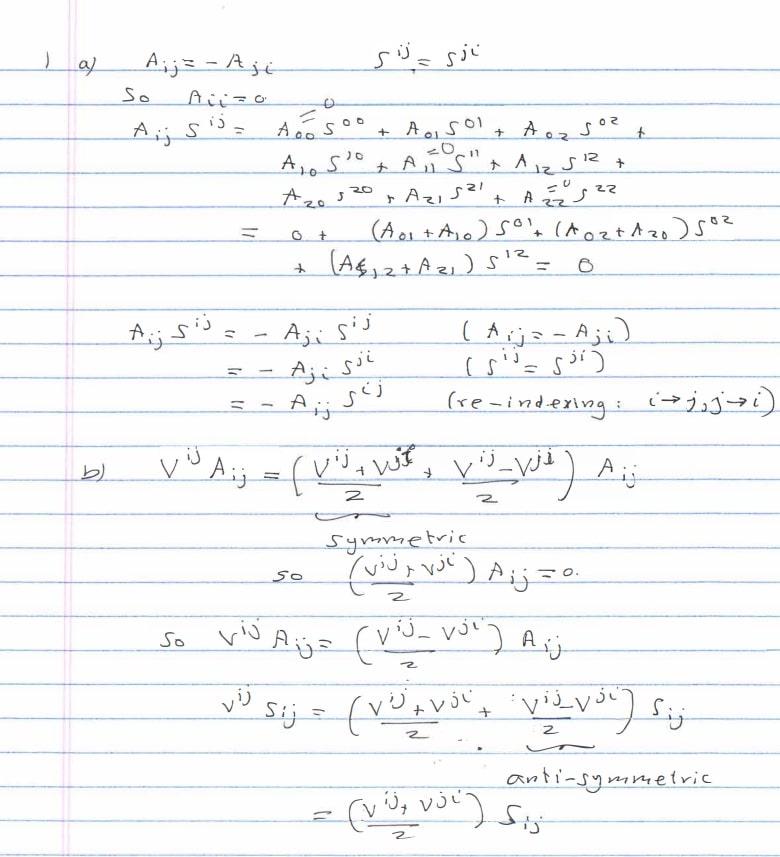 1 a) A_{ij} = - A_{ji}    S^{ij} = S^{ji}
So A_{ii} = 0
A_{ij} S^{ij} = A_{00}^{=0} S^{00} + A_{01} S^{01} + A_{02} S^{02} +
A_{10} S^{10} + A_{11}^{=0} S^{11} + A_{12} S^{12} +
A_{20} S^{20} + A_{21} S^{21} + A_{22}^{=0} S^{22}
= 0 + (A_{01} + A_{10}) S^{01} + (A_{02} + A_{20}) S^{02}
+ (A_{12} + A_{21}) S^{12} = 0
A_{ij} S^{ij} = - A_{ji} S^{ij}    (A_{ij} = - A_{ji})
= - A_{ji} S^{ji}    (S^{ij} = S^{ji})
= - A_{ij} S^{ij}    (re-indexing: i→j, j→i)
b) V^{ij} A_{ij} = ( \frac{V^{ij} + V^{ji}}{2} + \frac{V^{ij} - V^{ji}}{2} ) A_{ij}
symmetric
so ( \frac{V^{ij} + V^{ji}}{2} ) A_{ij} = 0.
So V^{ij} A_{ij} = ( \frac{V^{ij} - V^{ji}}{2} ) A_{ij}
V^{ij} S_{ij} = ( \frac{V^{ij} + V^{ji}}{2} + \frac{V^{ij} - V^{ji}}{2} ) S_{ij}
anti-symmetric
= ( \frac{V^{ij} + V^{ji}}{2} ) S_{ij}